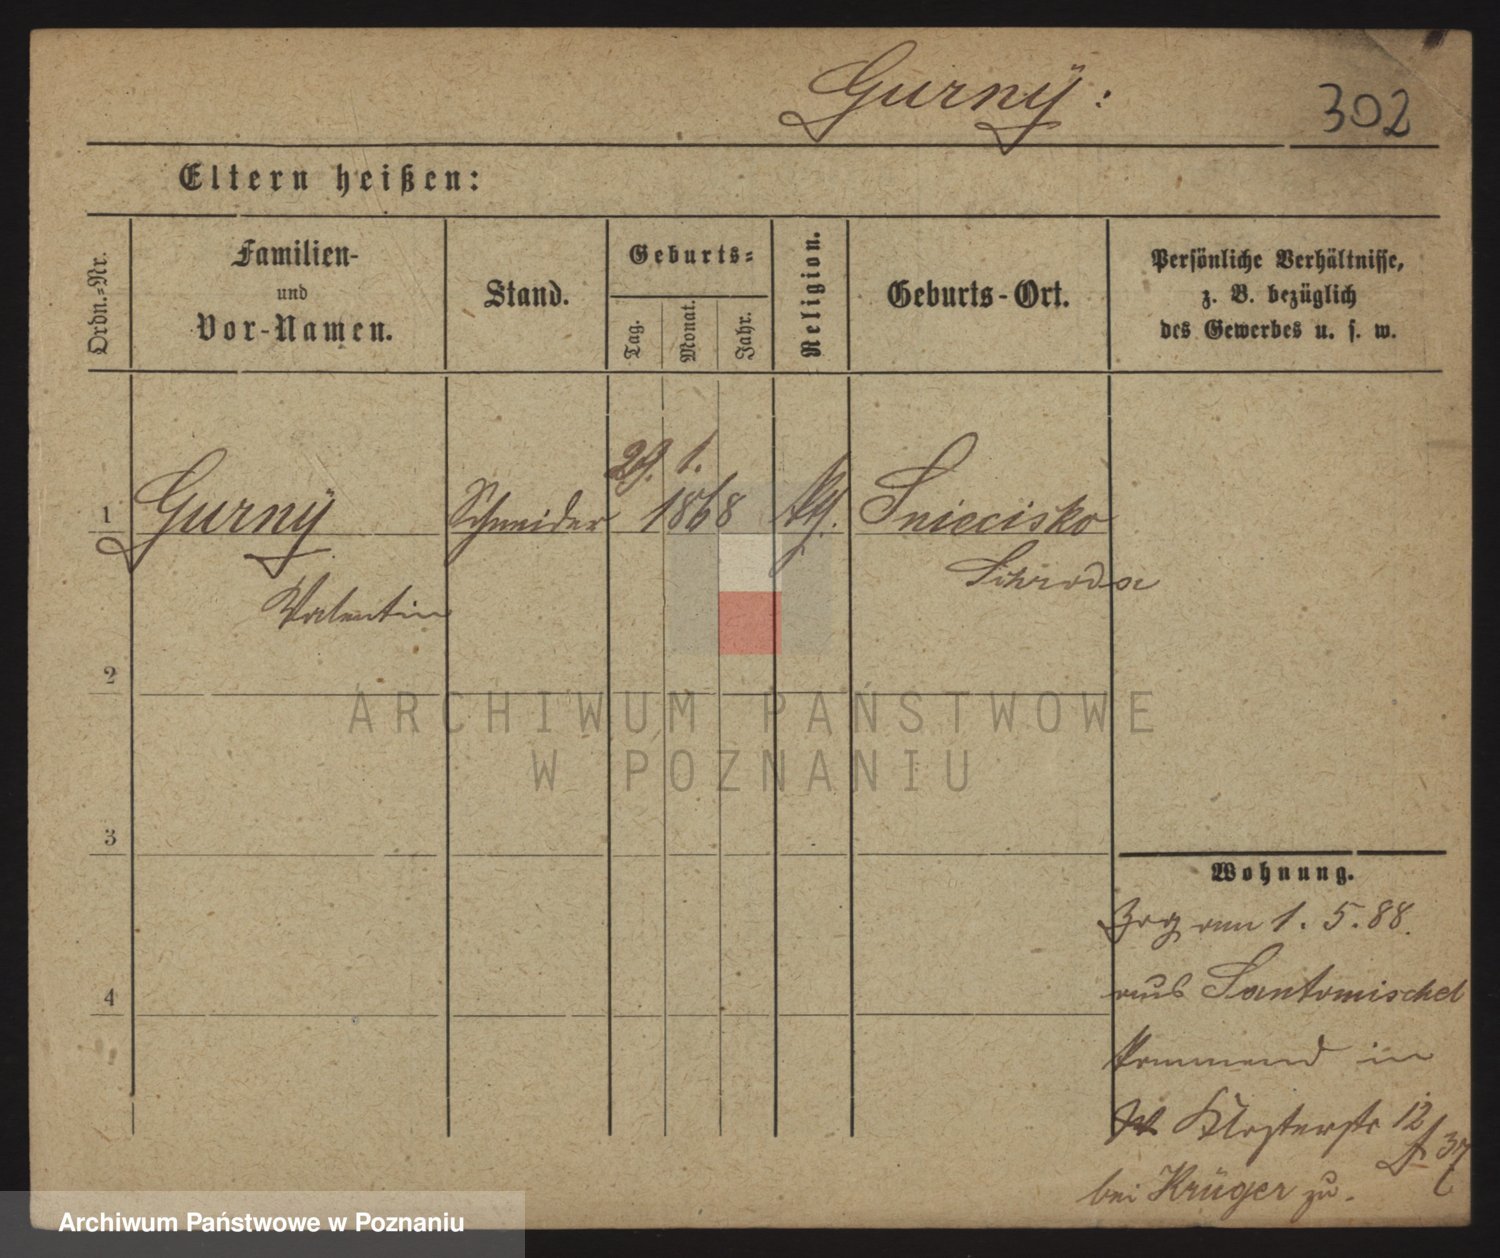 Gurnÿ:
302
Eltern heißen:
Ordn.-Nr.
Familien-
und
Vor-Namen.
Stand.
Geburts-
Tag.
Monat.
Jahr.
Religion.
Geburts-Ort.
Persönliche Verhältnisse,
z. B. bezüglich
des Gewerbes u. s. w.
29. 1.
1 Gurnÿ Schneider 1868 Sniecisko
Valentin Schroda
2
ARCHIWUM PAŃSTWOWE
W POZNANIU
3
4
Wohnung.
Zog am 1. 5. 88.
aus Santomischel
kommend in
Klosterstr 12
bei Krüger zu.
Archiwum Państwowe w Poznaniu